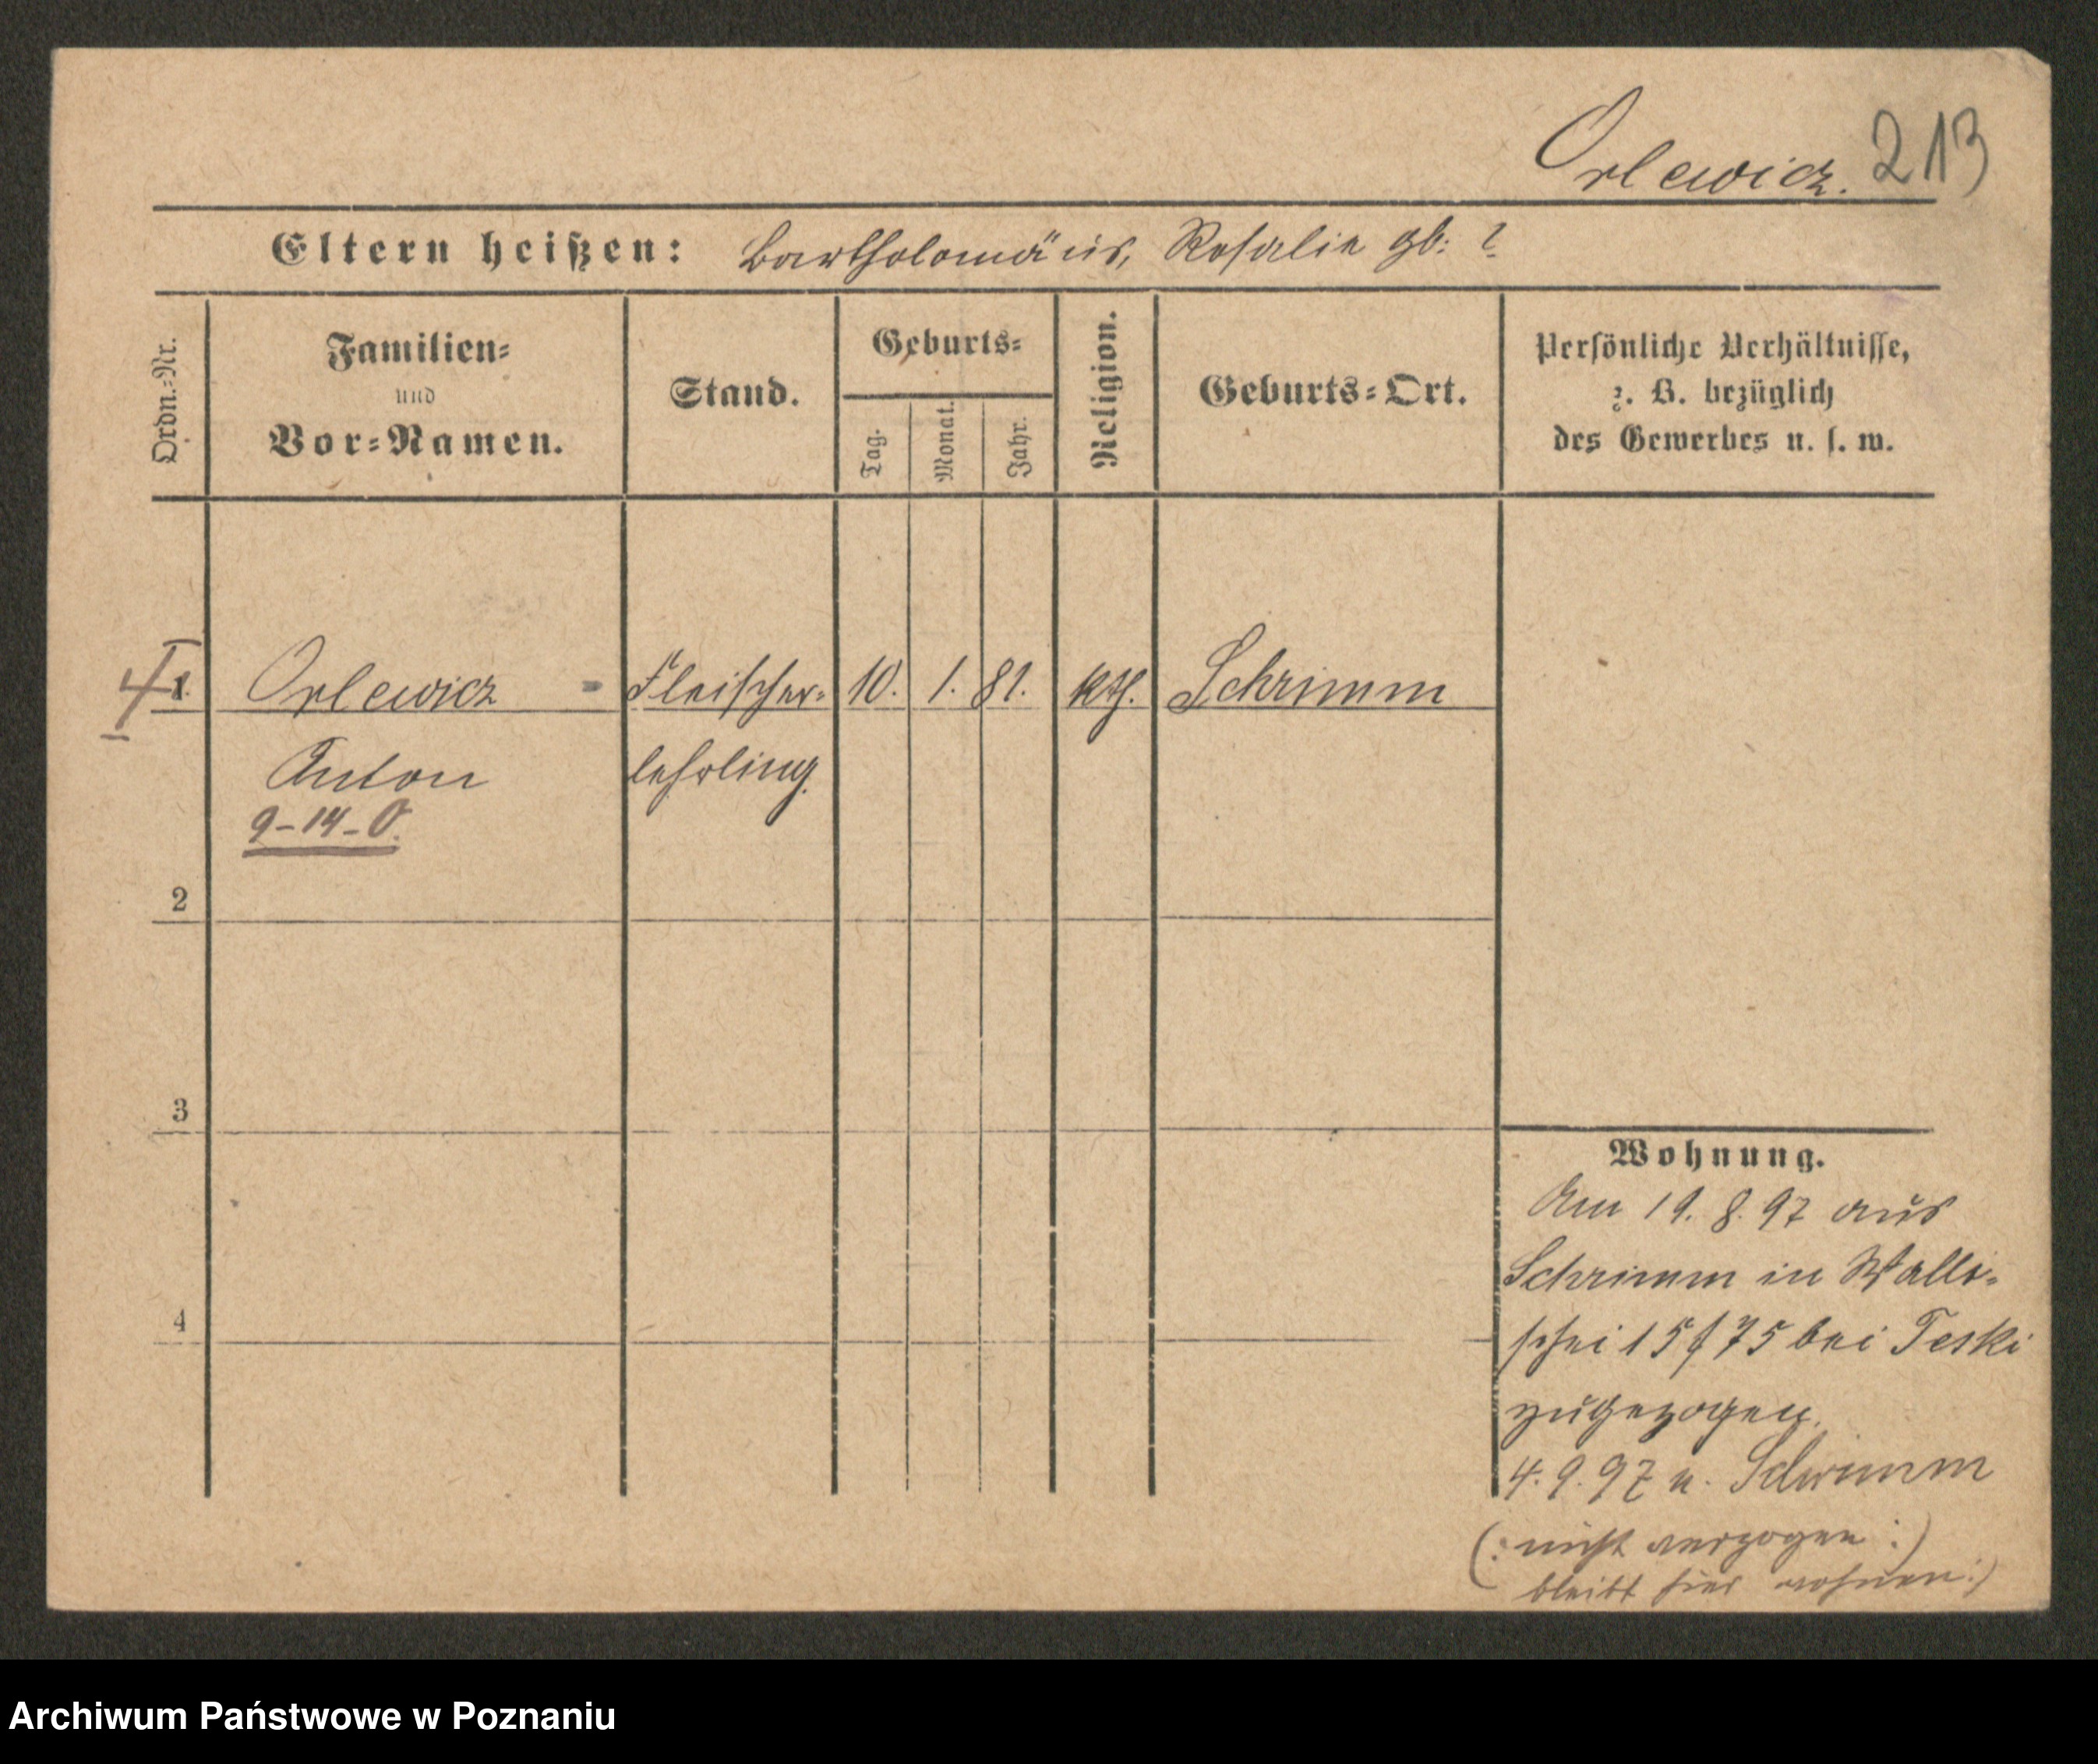 Orlewicz. 213
Eltern heißen: Bartholomäus, Rosalie gb: ?
Ordn.=Nr.
Familien=
und
Vor=Namen.
Stand.
Geburts=
Tag.
Monat.
Jahr.
Religion.
Geburts=Ort.
Persönliche Verhältnisse,
z. B. bezüglich
des Gewerbes u. s. w.
1. Orlewicz = Fleischer= 10. 1. 81. kth. Schrimm
Anton lehrling.
9-14-0.
2
3
4
Wohnung.
Am 19. 8. 97 aus
Schrimm in Walli=
schei 15/75 bei Teski
zugezogen.
4. 9. 97 n. Schrimm
(: nicht verzogen :)
bleibt hier wohnen :)
Archiwum Państwowe w Poznaniu